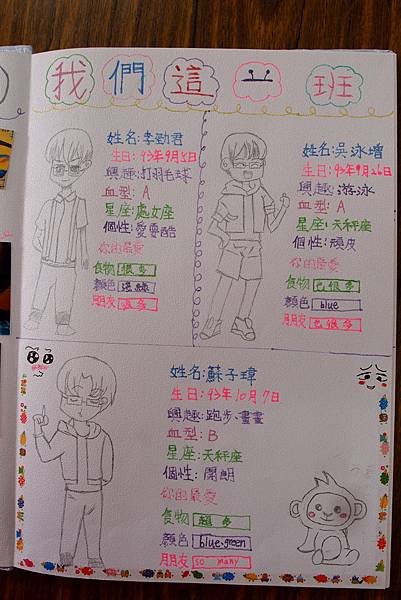 我們這一班
姓名:李勁君
生日:93年9月5日
興趣:打羽毛球
血型:A
星座:處女座
個性:愛耍酷
你的最愛
食物 很多
顏色
朋友 很多
姓名:吳泳增
生日:94年9月26日
興趣:游泳
血型:A
星座:天秤座
個性:頑皮
你的最愛
食物 也很多
顏色 blue
朋友 也很多
姓名:蘇子瑋
生日:93年10月7日
興趣:跑步、畫畫
血型:B
星座:天秤座
個性:開朗
你的最愛
食物 超多
顏色 blue、green
朋友 so many